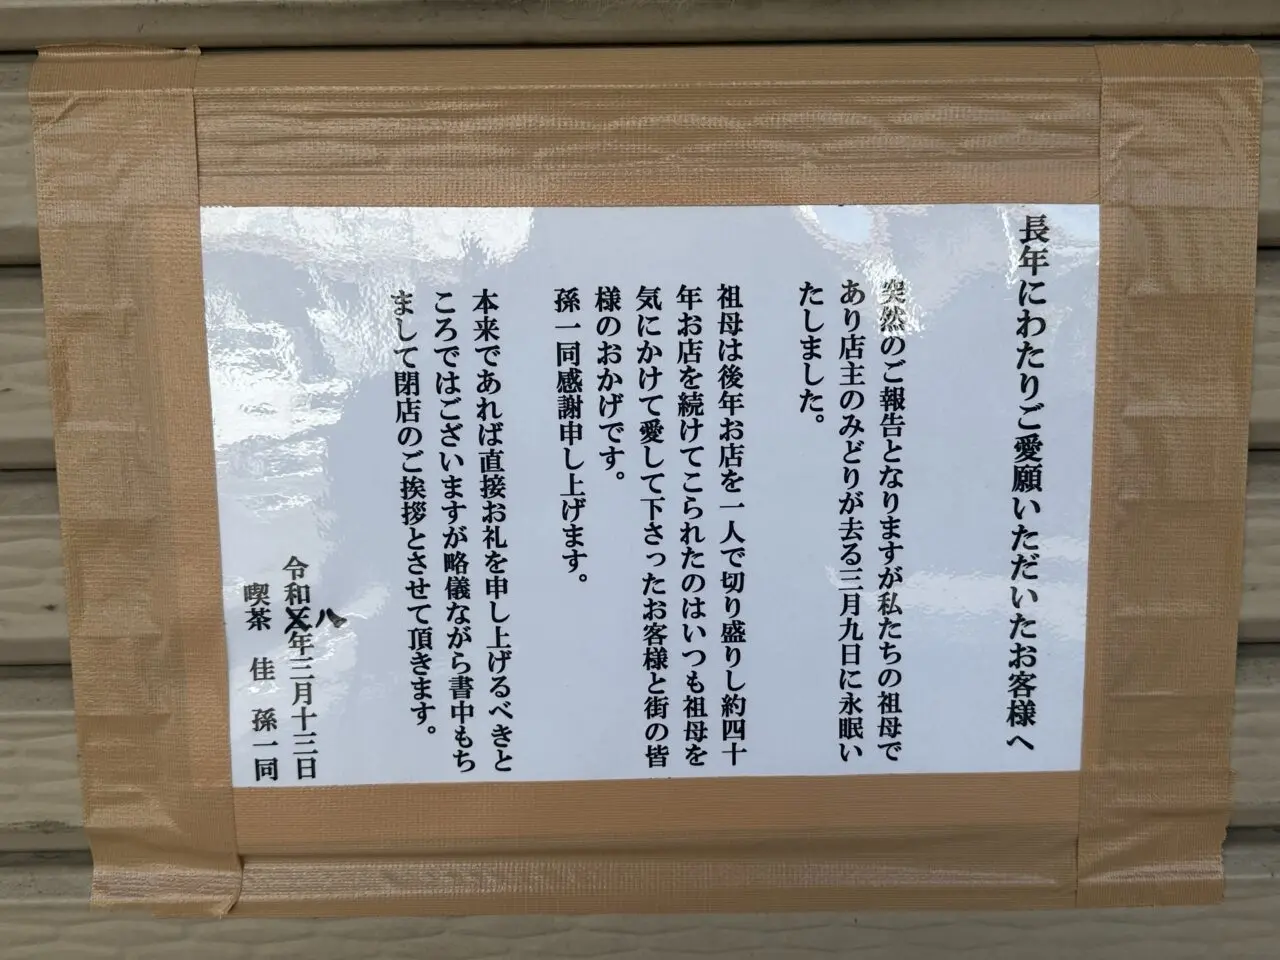 長年にわたりご愛願いただいたお客様へ
突然のご報告となりますが私たちの祖母で
あり店主のみどりが去る三月九日に永眠い
たしました。
祖母は後年お店を一人で切り盛りし約四十
年お店を続けてこられたのはいつも祖母を
気にかけて愛して下さったお客様と街の皆
様のおかげです。
孫一同感謝申し上げます。
本来であれば直接お礼を申し上げるべきと
ころではございますが略儀ながら書中もち
まして閉店のご挨拶とさせて頂きます。
令和八年三月十三日
喫茶 佳 孫一同